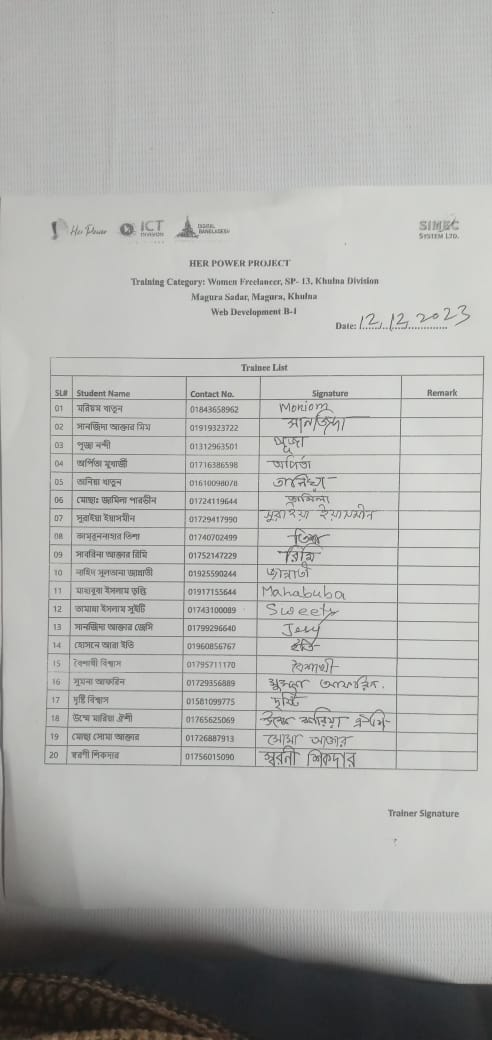 Her Power
ICT
DIVISION
DIGITAL
BANGLADESH
SIMEC
SYSTEM LTD.
HER POWER PROJECT
Training Category: Women Freelancer, SP- 13, Khulna Division
Magura Sadar, Magura, Khulna
Web Development B-1
Date: 12.12.2023
Trainee List
SL# Student Name Contact No. Signature Remark
01 মরিয়ম খাতুন 01843658962 Moriom
02 সানজিদা আক্তার মিম 01919323722 সানজিদা
03 পূজা নন্দী 01312963501 পূজা
04 অর্পিতা মুখার্জী 01716386598 অর্পিতা
05 তানিয়া খাতুন 01610098078 তানিয়া
06 মোছাঃ জামিলা পারভীন 01724119644 জামিলা
07 সুরাইয়া ইয়াসমীন 01729417990 সুরাইয়া ইয়াসমীন
08 কামরুননাহার তিশা 01740702499 তিশা
09 সাবরিনা আক্তার রিমি 01752147229 রিমি
10 নাহিদ সুলতানা জান্নাতী 01925590244 জান্নাতী
11 মাহাবুবা ইসলাম তৃপ্তি 01917155644 Mahabuba
12 তামান্না ইসলাম সুইটি 01743100089 Sweety
13 সানজিদা আক্তার জেসি 01799296640
14 হোসনে আরা ইতি 01960856767 ইতি
15 বৈশাখী বিশ্বাস 01795711170 বৈশাখী
16 সুমনা আফরিন 01729356889 সুমনা আফরিন.
17 দৃষ্টি বিশ্বাস 01581099775 দৃষ্টি
18 উম্মে মারিয়া ঐশী 01765625069 উম্মে মারিয়া ঐশী
19 মোছা সোমা আক্তার 01726887913 সোমা আক্তার
20 স্বরণী শিকদার 01756015090 স্বরনী শিকদার
Trainer Signature